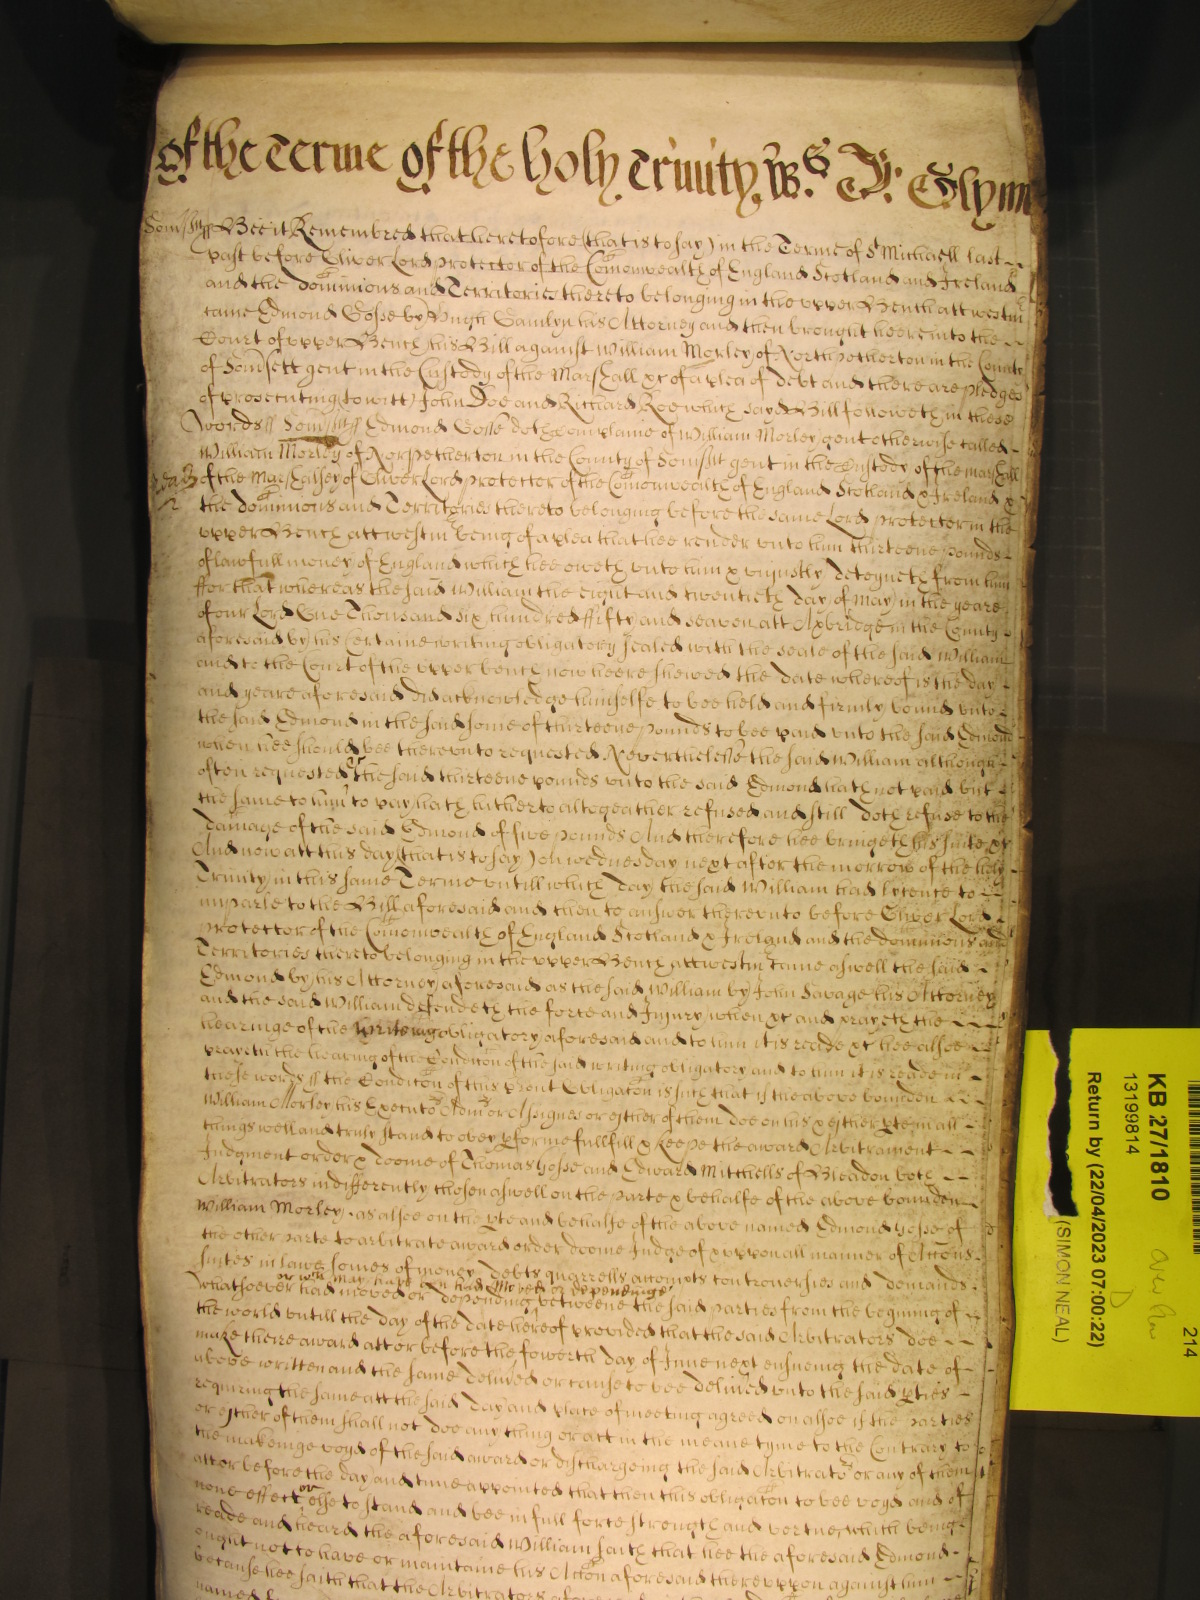 of the Terme of the holy Trinity. W. S T. Glynn
Somsett ss Bee it Remembred that heretofore (that is to say) in the Terme of St Michaell last
past before Oliver Lord protector of the Comonwealth of England Scotland and Ireland
and the dominions and Territories thereto belonging in the upper Bench att westm
came Edmond Gosse by Hugh his Attorney and then brought heere into the
Court of upper Bench his Bill against William Morley of Northpetherton in the County
of Somsett gent in the Custody of the Marshall &c of a plea of debt and there are pledges
of prosecuting (towitt) John Doe and Richard Roe which sayd Bill followeth in these
words ss Somsett ss Edmond Gosse doth complaine of William Morley gent otherwise called
William Morley of Norpetherton in the County of Somsett gent in the Custody of the marshall
of the Marshalsey of Oliver Lord protector of the Comonwealth of England Scotland & Ireland &
the dominions and Territories thereto belonging before the same Lord protector in the
upper Bench att westm being of a plea that hee render unto him thirteene pounds
of lawfull money of England which hee oweth unto him & uniustly deteyneth from him
ffor that whereas the said William the eight and twentieth day of May in the yeare
of our Lord One Thousand six hundred ffifty and seaven att Axbridge in the County
aforesaid by his certaine writing obligatory sealed with the seale of the said William
and to the Court of the upper bench now heere shewed the date whereof is the day
and yeare aforesaid did acknowledge himselfe to bee held and firmly bound unto
the said Edmond in the said some of thirteene pounds to bee paid unto the said Edmond
when hee should bee thereunto requested Neverthelesse the said William although
often requested &c the said thirteene pounds unto the said Edmond hath not paid but
the same to him to pay hath hitherto altogeather refused and still doth refuse to the
damage of the said Edmond of five pounds And therefore hee bringeth his suite &c
And now att this day (that is to say) on wednesday next after the morrow of the holy
Trinity in this same Terme untill which day the said William had lycence to
imparle to the Bill aforesaid and then to answer thereunto before Oliver Lord
protector of the Comonwealth of England Scotland & Ireland and the dominions and
Territories thereto belonging in the upper Bench att westm came aswell the said
Edmond by his Attorney aforesaid as the said William by John Savage his Attorney
and the said William defendeth the force and Iniury when &c and prayeth the
hearinge of the writeing obligatory aforesaid and to him it is reade &c hee alsoe
prayeth the hearing of the Condicon of the said writing obligatory and to him it is reade in
these words ss the Condicon of this prsent Obligacon is such that if the above bounden
William Morley his Executors Admors or Assignes or eyther of them doe on his & eyther pte in all
things well and truly stand to obey pforme fullfill & keepe the award Arbitrament
Iudgment order & doome of Thomas Gosse and Edward Mitchells of Bleadon both
Arbitrators indifferently chosen aswell on the parte & behalfe of the above bounden
William Morley as alsoe on the pte and behalfe of the above named Edmond Gosse of
the other parte to arbitrate award order doome Iudge of & uppon all manner of Accons
suites in lawe somes of money debts quarrells accompts controversies and demands
or wch may have bin had moved or dependinge
whatsoever had moved or depending betweene the said parties from the begining of
the world untill the day of the date hereof provided that the said Arbitrators doe
make theire award att or before the fowerth day of June next ensueing the date of
above written and the same delived or cause to bee delived unto the said pties
requiring the same att the said day and place of meeting agreed on alsoe if the parties
or eyther of them shall not doe any thing or act in the meane tyme to the Contrary to
the makeinge voyd of the said award or dischargeing the said Arbitrators or any of them
att or before the day and time appointed that then this obligacon to bee voyd and of
none effect or else to stand and bee in full force strength and vertue which being
reade and heard the aforesaid William saith that hee the aforesaid Edmond
ought not to have or maintaine his Accon aforesaid thereuppon against him
because hee saith that the Arbitrators
named
KB 27/1810
13199814
Return by (22/04/2023 07:00:22)
(SIMON NEAL)
214